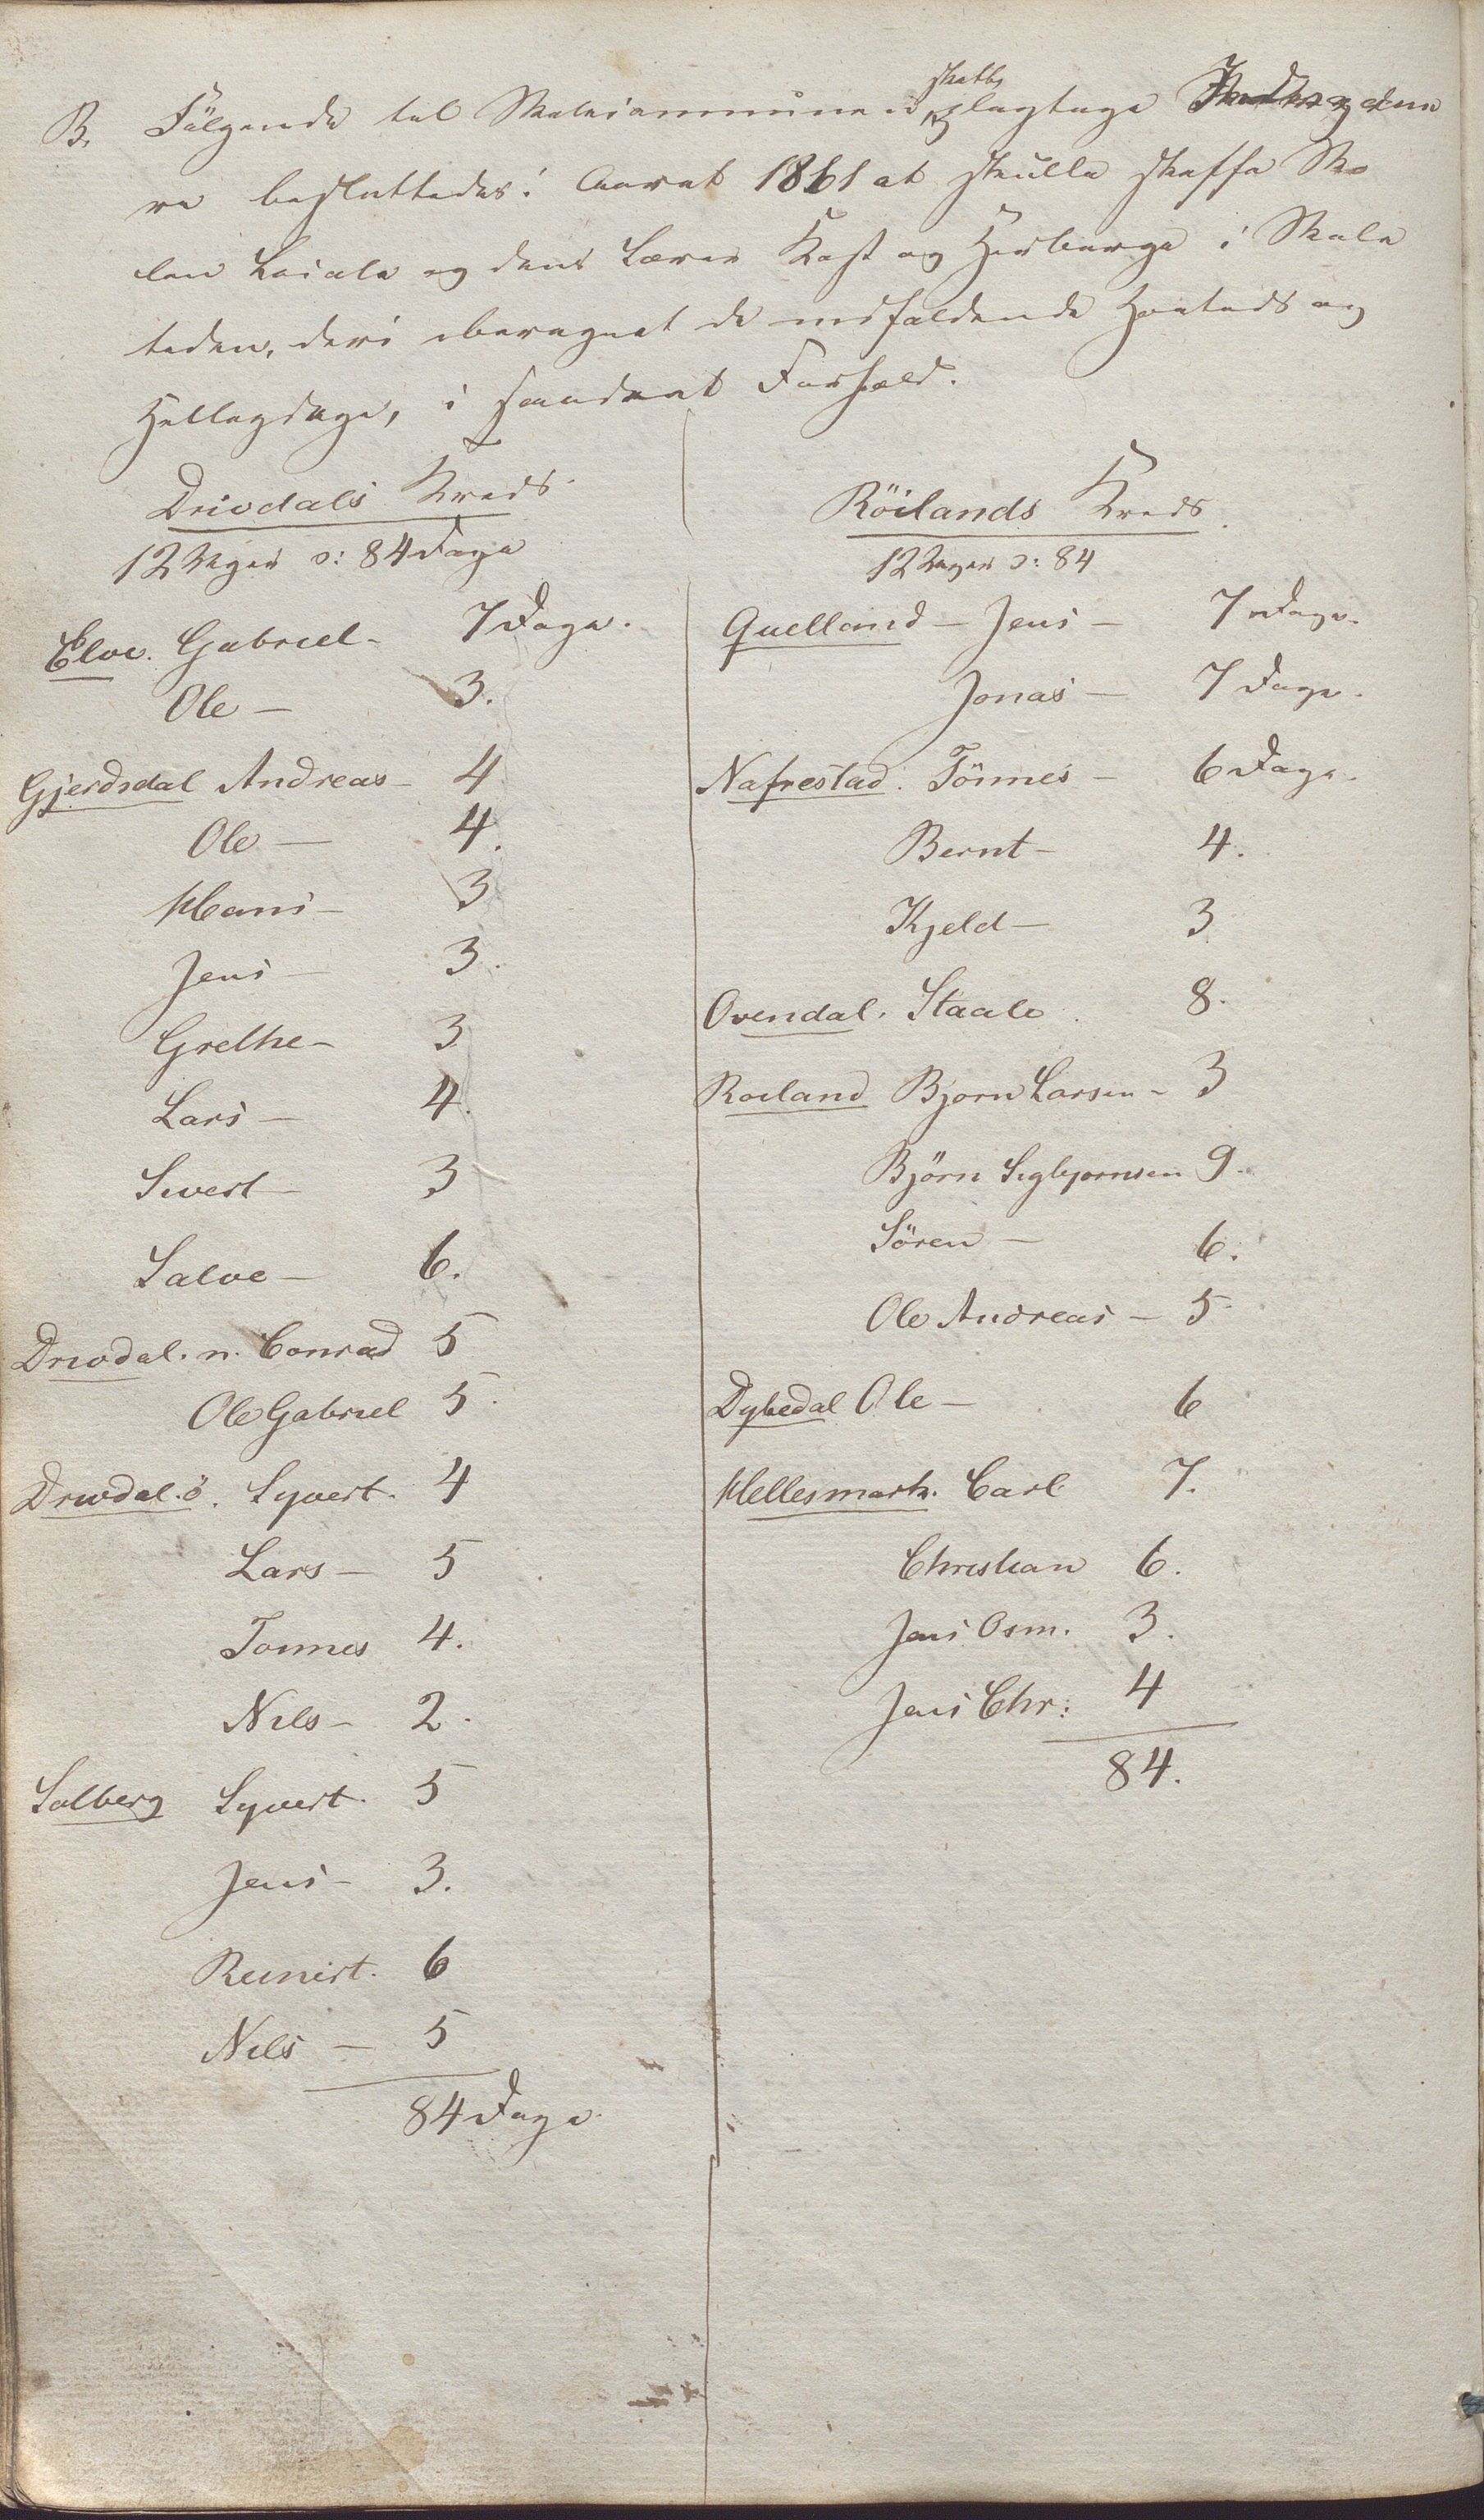 B. Følgende til Skolecommunen skatte
re besluttedes i Aaret 1861 at skulle skaffe Sko
len Locale og dens Lærer Kost og Herberge i Skole
tiden, deri iberegnet de indfaldende Høitids og
Helligdage, i saadant Forhold.
Drivdals Kreds.
12 Uger ɔ: 84 Dage
Elve. Gabriel - 7 Dage.
Ole - 3.
Gjerdsdal Andreas - 4
Ole - 4.
Hans - 3
Jens - 3.
Grethe - 3
Lars - 4.
Sivert - 3
Salve - 6.
Drivdal. n. Conrad 5
Ole Gabriel 5.
Drivdal. ö. Syvert. 4
Lars - 5
Tonnes 4.
Nils - 2.
Solberg Syvert. 5
Jens - 3.
Reinert. 6
Nils - 5
84 Dage.
Röilands Kreds.
12 Uger ɔ: 84
Quelland - Jens - 7 Dage.
Jonas - 7 Dage.
Nafrestad. Tönnes - 6 Dage.
Bernt - 4.
Kjeld - 3
Ovendal. Staale. 8.
Roiland Bjorn Larsen - 3
Björn Sigbjornsen 9.
Sören - 6.
Ole Andreas - 5.
Dybedal Ole - 6
Hellesmark. Carl 7.
Christian 6.
Jens Osm. 3.
Jens Chr: 4
84.